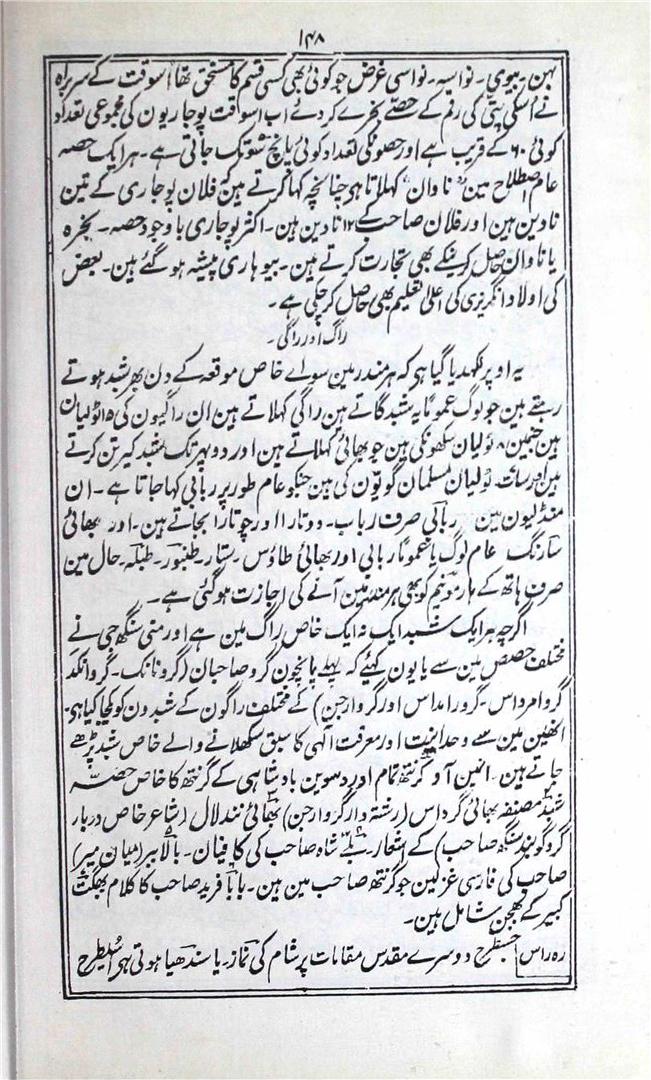 ۱۴۸
بہن۔ بیوی۔ نواسیہ۔ نواسی غرض جو کوئی بھی کسی قسم کا مستحق تھا اسوقت کے سربراہ
نے اُسکی پتی کی رقم کے حصے بخرے کر دئے اب اسوقت پوجاریون کی مجموعی تعداد
کوئی ۶۰ کے قریب ہے اور حصونکی تعداد کوئی پانچ سو تک جاتی ہے۔ ہر ایک حصہ
عام اصطلاح مین "ناوان" کہلاتا ہی چنانچہ کہا کرتے ہین کہ فلان پوجاری کے تین
ناوین ہین اور فلان صاحب کے ۱۲ ناوین ہین۔ اکثر پوجاری باوجود حصہ۔ بخرہ
یا ناوان حاصل کرنیکے بھی تجارت کرتے ہین۔ بیوہاری پیشہ ہو گئے ہین۔ بعض
کی اولاد انگریزی کی اعلیٰ تعلیم بھی حاصل کر چکی ہے۔
راگ اور راگی۔
یہ اوپر لکھدیا گیا ہی کہ ہر مندر مین سوائے خاص موقعہ کے دن بھر شبد ہوتے
رہتے ہین جو لوگ عموماً یہ شبد گاتے ہین راگی کہلاتے ہین ان راگیون کی ۱۵ ٹولیان
ہین جنمین ۸ ٹولیان سکھونکی ہین جو بھائی کہلاتے ہین اور دوپہر تک شبد کیرتن کرتے
ہین اور سات ٹولیان مسلمان گویّون کی ہین جنکو عام طور پر ربابی کہا جاتا ہے۔ ان
منڈلیون مین ربابی صرف رباب۔ دوتارا اور چوتارا بجاتے ہین۔ اور بھائی
سارنگ عام لوگ یا عموماً ربابی اور بھائی طاؤس۔ ستار۔ طنبور۔ طبلہ۔ حال مین
صرف ہاتھ کے ہارمونیم کو بھی ہر مندر مین آنے کی اجازت ہو گئی ہے۔
اگرچہ ہر ایک شبد ایک نہ ایک خاص راگ مین ہے اور منی سنگھ جی نے
مختلف حصص مین سے یا یون کہئے کہ پہلے پانچون گرو صاحبان (گرو نانک۔ گرو انگد
گرو امرداس۔ گرو رامداس اور گرو ارجن) کے مختلف راگون کے شبدون کو یکجا کیا ہی۔
انھین مین سے وحدانیت اور معرفت الٰہی کا سبق سکھلانے والے خاص شبد پڑھے
جاتے ہین۔ انمین آد گرنتھ تمام اور دسوین بادشاہی کے گرنتھ کا خاص حصہ
شبد مصنفہ بھائی گرداس (رشتہ دار گرو ارجن) بھائی نندلال (شاعر خاص دربار
گرو گوبند سنگھ صاحب) کے اشعار۔ بلہے شاہ صاحب کی کافیان۔ بالا پیر (میان میر)
صاحب کی فارسی غزلین جو گرنتھ صاحب مین ہین۔ بابا فرید صاحب کا کلام بھگت
کبیر کے بھجن شامل ہین۔
رہ راس جسطرح دوسرے مقدس مقامات پر شام کی نماز۔ یا سندھیا ہوتی ہی اسیطرح